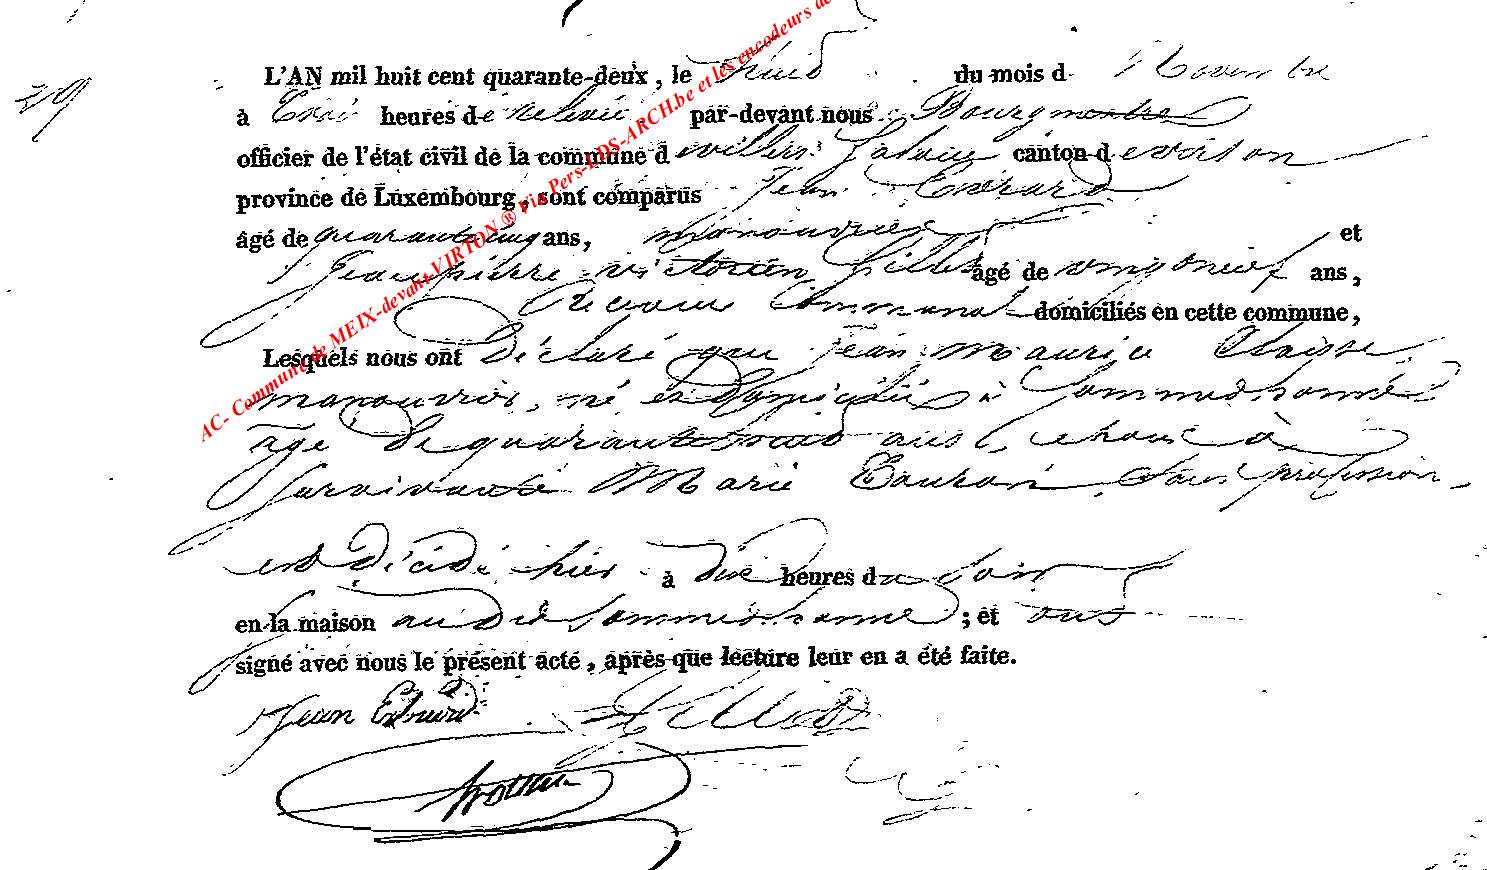 29
L'AN mil huit cent quarante-deux, le huit du mois d Novembre
à trois heures de relevée par-devant nous Bourgmestre
officier de l'état civil de la commune de villers canton de virton
province de Luxembourg, sont comparus Jean Evrard
âgé de quarante cinq ans, manouvrier et
Jean pierre victorien Gilles âgé de vingt neuf ans,
receveur Communal domiciliés en cette commune,
Lesquels nous ont déclaré que Jean Maurice
manouvrier, né et domicilié à Sommethonne
âgé de quarante ans, époux à
survivante Marie sans profession
est décédé hier à dix heures du soir
en la maison audit Sommethonne ; et ont
signé avec nous le présent acte, après que lecture leur en a été faite.
Jean Evrard Gilles
AC- Commune de MEIX-devant-VIRTON ® Via Pers-LDS-ARCH.be et les encodeurs de